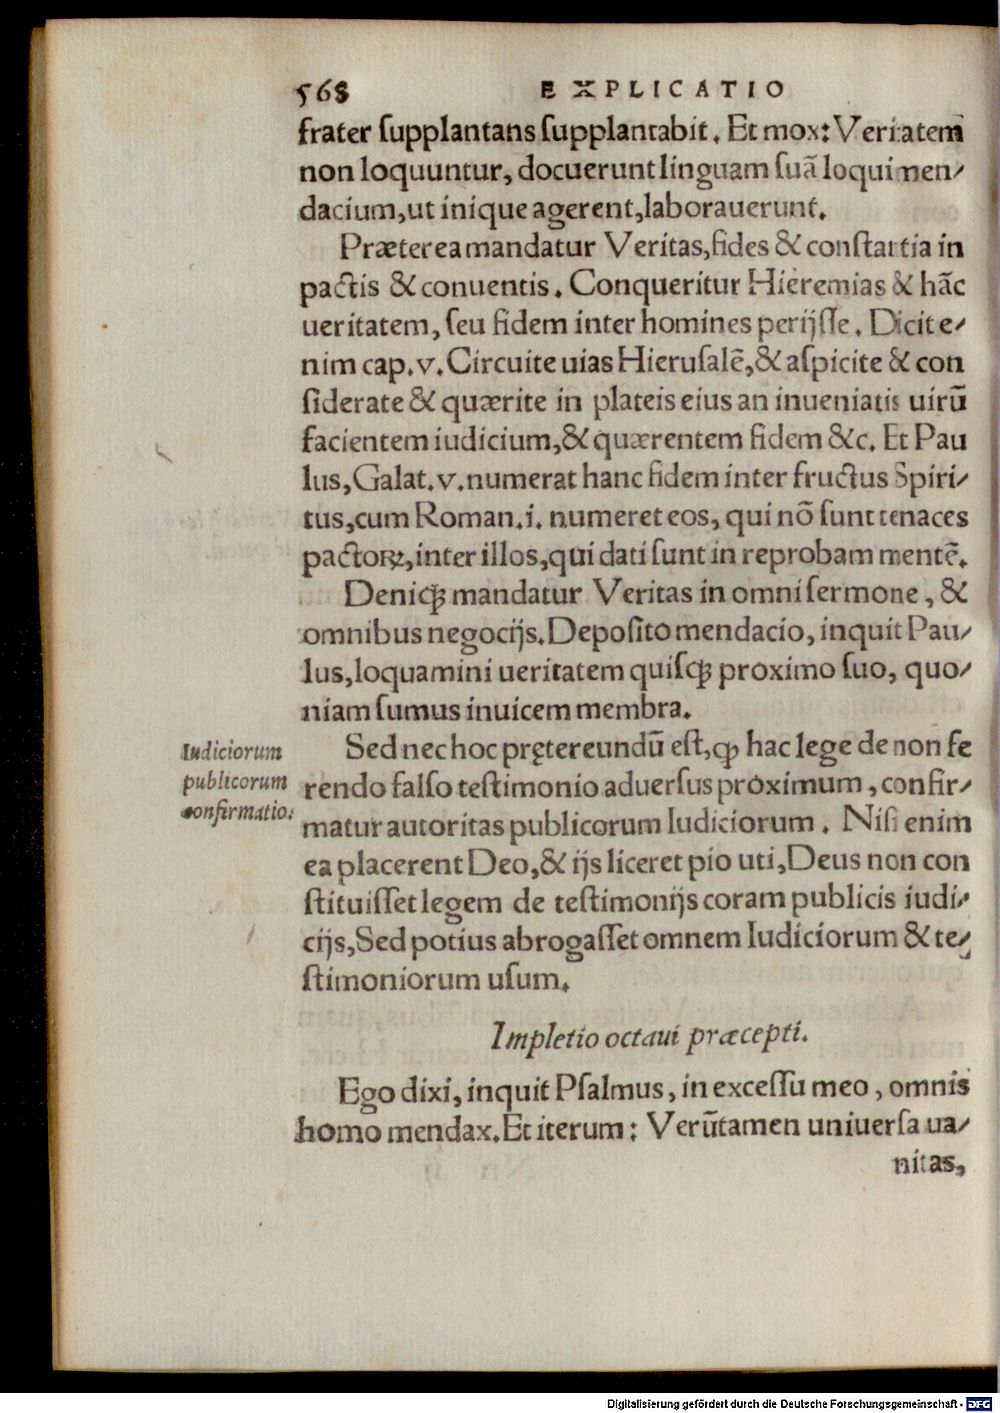 568 EXPLICATIO
frater ſupplantans ſupplantabit. Et mox: Veritatem
non loquuntur, docuerunt linguam ſuā loqui men/
dacium, ut inique agerent, laborauerunt.
Præterea mandatur Veritas, fides & conſtantia in
pactis & conuentis. Conqueritur Hieremias & hāc
ueritatem, ſeu fidem inter homines perijſſe. Dicit e/
nim cap. v. Circuite uias Hieruſalē, & aſpicite & con
ſiderate & quærite in plateis eius an inueniatis uirū
facientem iudicium, & quærentem fidem &c. Et Pau
lus, Galat. v. numerat hanc fidem inter fructus Spiri/
tus, cum Roman. i. numeret eos, qui nō ſunt tenaces
pactoꝝ, inter illos, qui dati ſunt in reprobam mentē.
Deniqꝫ mandatur Veritas in omni ſermone, &
omnibus negocijs. Depoſito mendacio, inquit Pau/
lus, loquamini ueritatem quiſqꝫ proximo ſuo, quo/
niam ſumus inuicem membra.
Iudiciorum
publicorum
confirmatio.
Sed nec hoc prętereundū eſt, ꝙ hac lege de non fe
rendo falſo teſtimonio aduerſus proximum, confir/
matur autoritas publicorum Iudiciorum. Niſi enim
ea placerent Deo, & ijs liceret pio uti, Deus non con
ſtituiſſet legem de teſtimonijs coram publicis iudi/
cijs, Sed potius abrogaſſet omnem Iudiciorum & te/
ſtimoniorum uſum.
Impletio octaui præcepti.
Ego dixi, inquit Pſalmus, in exceſſu meo, omnis
homo mendax. Et iterum: Verūtamen uniuerſa ua/
nitas,
Digitalisierung gefördert durch die Deutsche Forschungsgemeinschaft - DFG